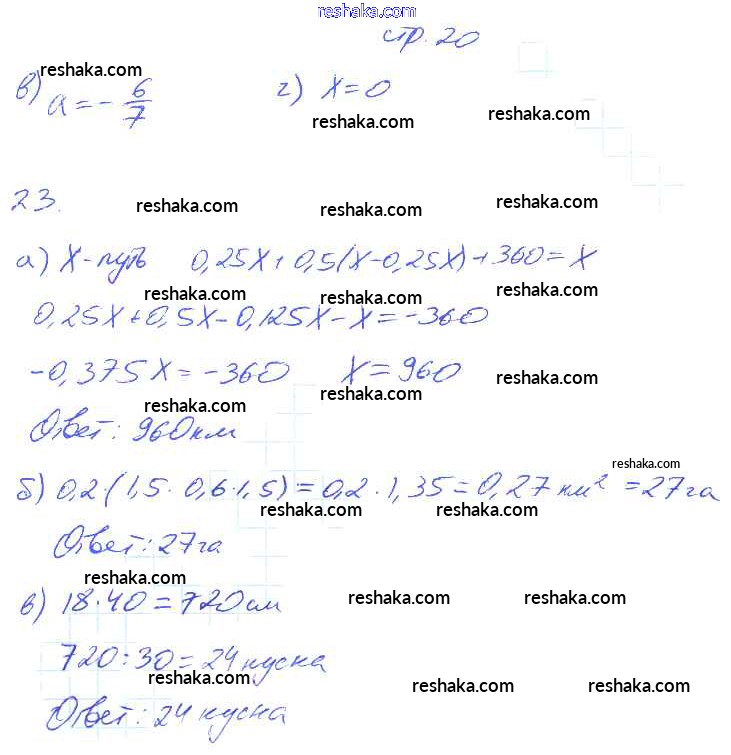 reshaka.com
стр. 20
reshaka.com
в) a = - 6/7 г) x = 0
reshaka.com
reshaka.com
23.
reshaka.com
reshaka.com
reshaka.com
а) X - путь 0,25X + 0,5(X - 0,25X) + 360 = X
reshaka.com
reshaka.com
reshaka.com
0,25X + 0,5X - 0,125X - X = -360
-0,375X = -360 X = 960
reshaka.com
reshaka.com
reshaka.com
Ответ: 960 км
reshaka.com
б) 0,2 · (1,5 · 0,6 · 1,5) = 0,2 · 1,35 = 0,27 км² = 27 га
reshaka.com
reshaka.com
Ответ: 27 га
reshaka.com
в) 18 · 40 = 720 см
reshaka.com
reshaka.com
720 : 30 = 24 куска
reshaka.com
reshaka.com
reshaka.com
Ответ: 24 куска